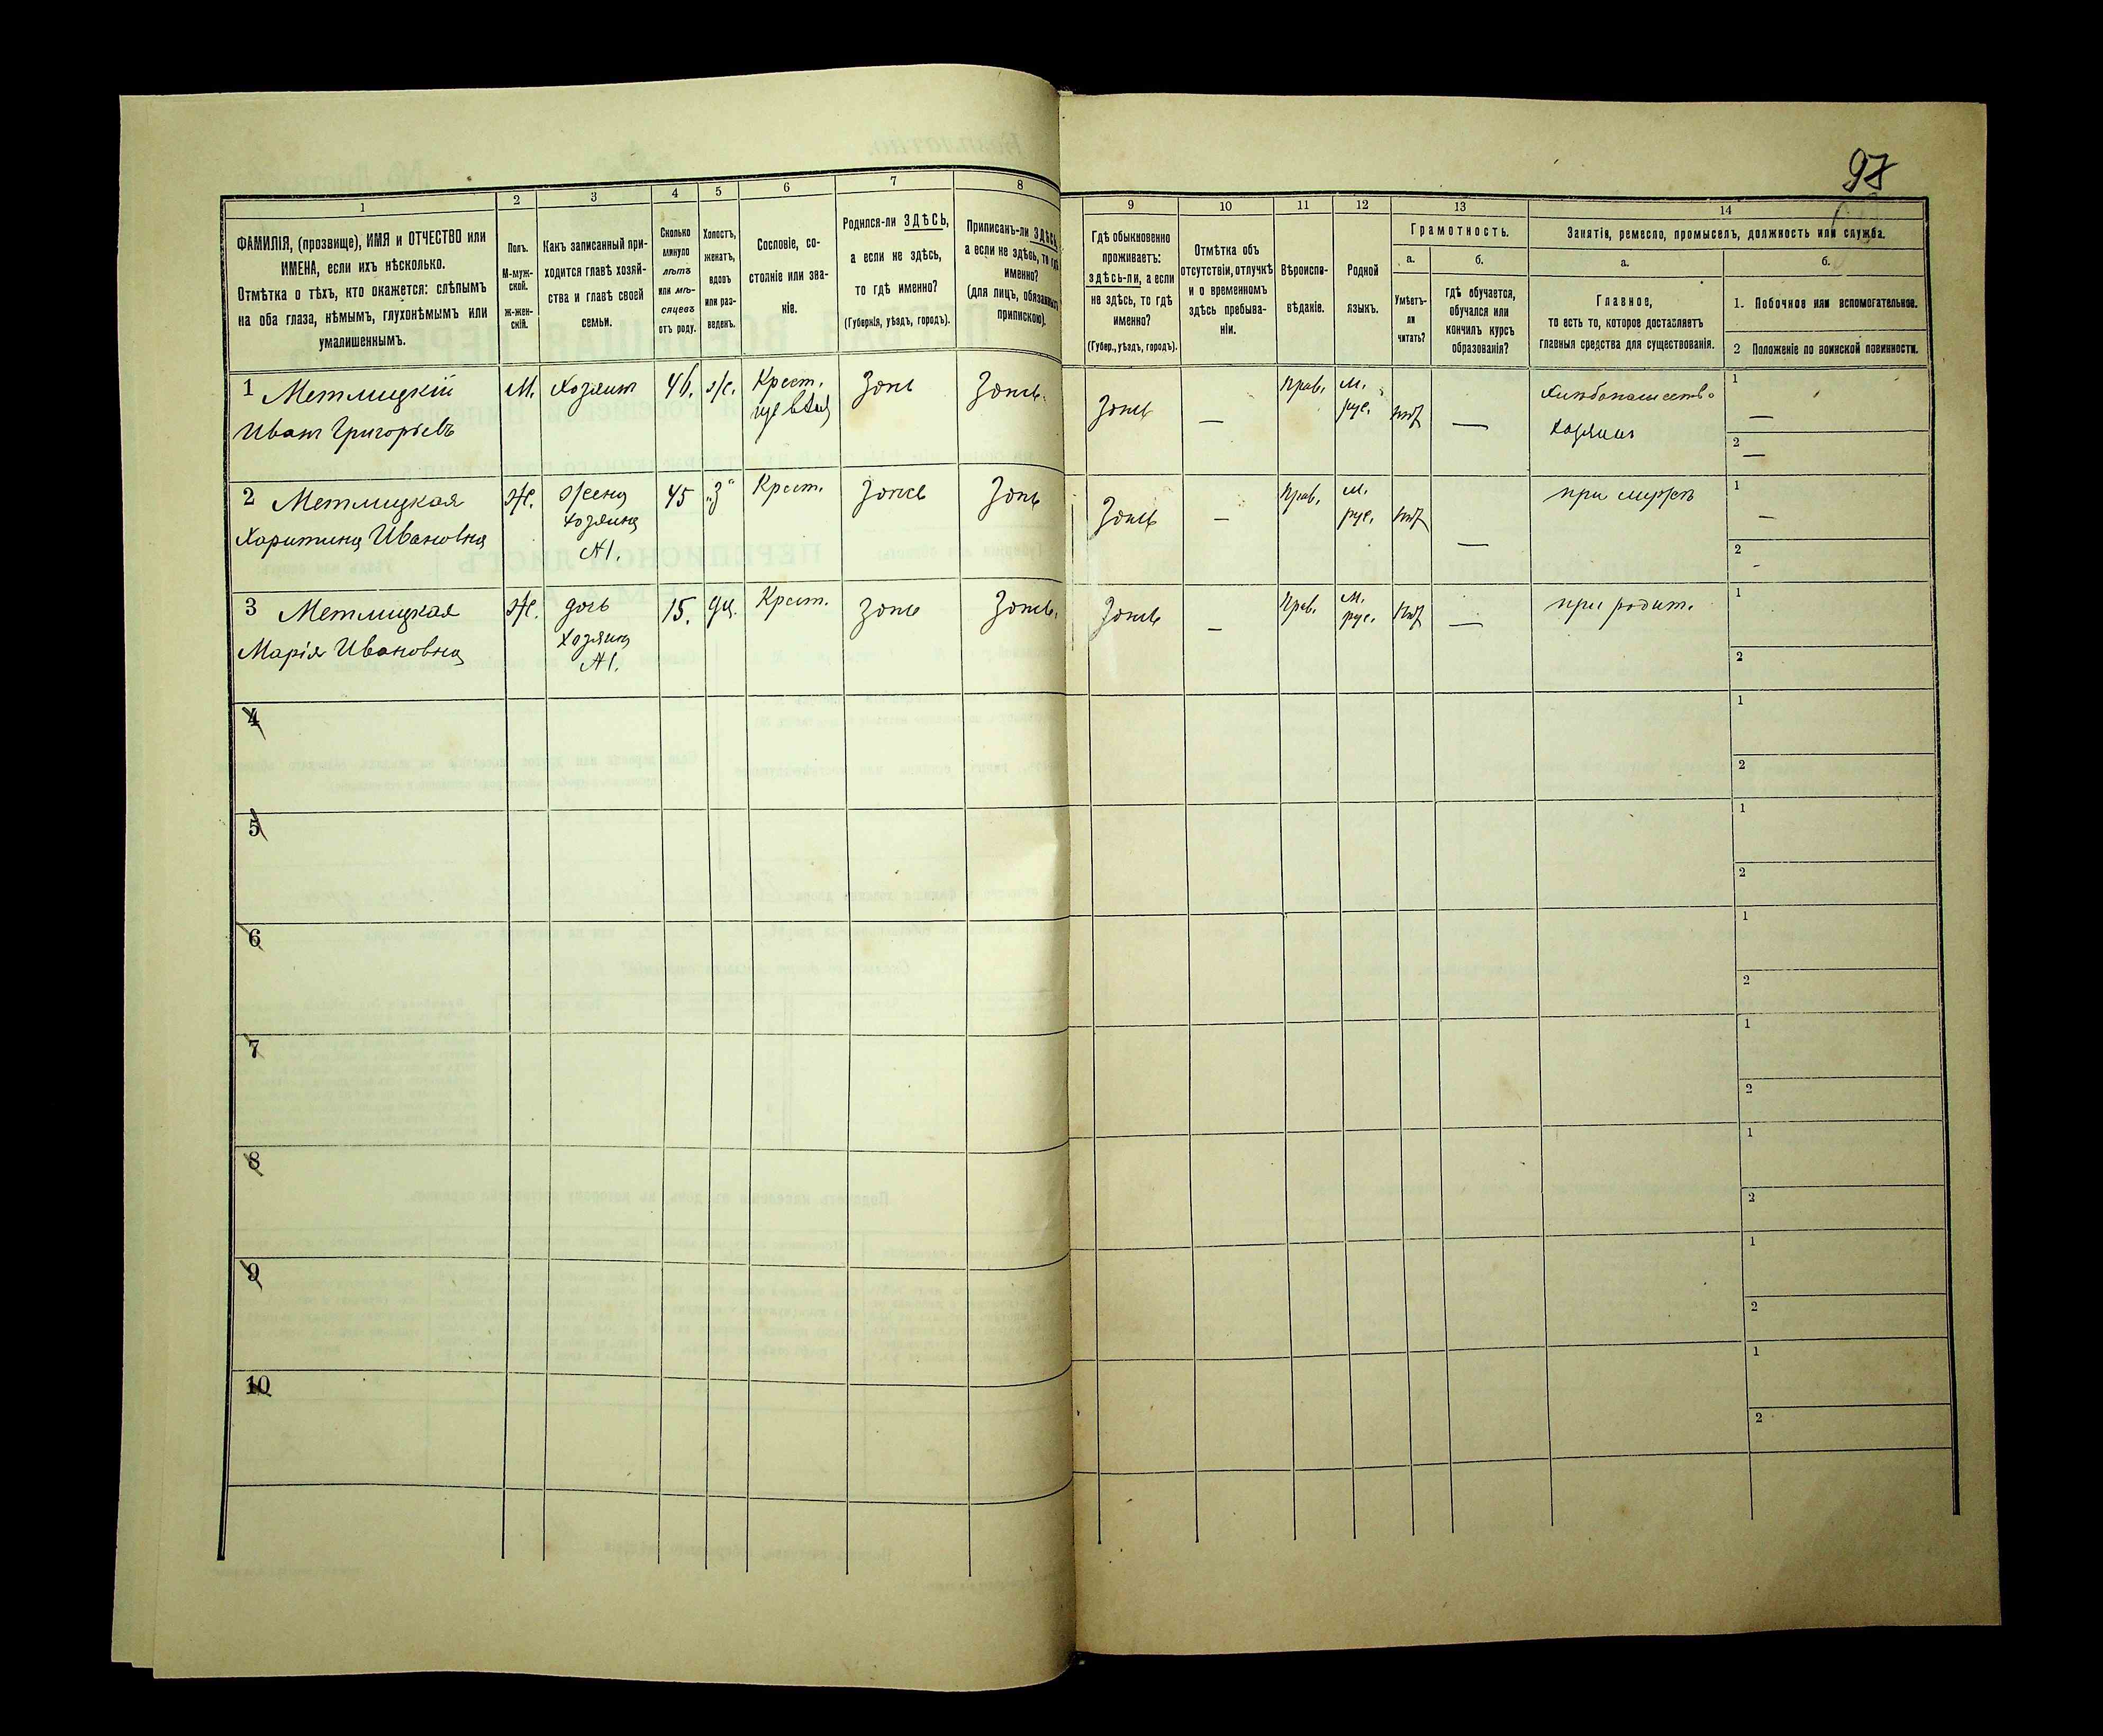 97
1 2 3 4 5 6 7 8 9 10 11 12 13 14
ФАМИЛІЯ, (прозвище), ИМЯ и ОТЧЕСТВО или
ИМЕНА, если ихъ нѣсколько.
Отмѣтка о тѣхъ, кто окажется: слѣпымъ
на оба глаза, нѣмымъ, глухонѣмымъ или
умалишеннымъ.
Полъ.
М-муж-
ской.
Ж-жен-
скій.
Какъ записанный при-
ходится главѣ хозяй-
ства и главѣ своей
семьи.
Сколько
минуло
лѣтъ
или мѣ-
сяцевъ
отъ роду.
Холостъ,
женатъ,
вдовъ
или раз-
веденъ.
Сословіе, со-
стояніе или зва-
ніе.
Родился-ли ЗДѢСЬ,
а если не здѣсь,
то гдѣ именно?
(Губернія, уѣздъ, городъ).
Приписанъ-ли ЗДѢСЬ,
а если не здѣсь, то гдѣ
именно?
(для лицъ, обязанныхъ
припискою).
Гдѣ обыкновенно
проживаетъ:
здѣсь-ли, а если
не здѣсь, то гдѣ
именно?
(Губер., уѣздъ, городъ).
Отмѣтка объ
отсутствіи, отлучкѣ
и о временномъ
здѣсь пребыва-
ніи.
Вѣроиспо-
вѣданіе.
Родной
языкъ.
Грамотность.
а.
Умѣетъ-
ли
читать?
б.
гдѣ обучается,
обучался или
кончилъ курсъ
образованія?
Занятія, ремесло, промыселъ, должность или служба.
а.
Главное,
то есть то, которое доставляетъ
главныя средства для существованія.
б.
1. Побочное или вспомогательное.
2 Положеніе по воинской повинности.
1 Метлицкій М. Хозяинъ 46. ж. Крест. Здѣсь Здѣсь. Здѣсь — Прав. М. рус. нѣт — Хлѣбопашество 1 —
Иванъ Григорьевъ Хозяинъ 2 —
2 Метлицкая Ж. Жена 45 "З" Крест. Здѣсь Здѣсь Здѣсь — Прав. М. рус. нѣт — при мужѣ 1 —
Харитина Ивановна хозяина №1. 2 -
3 Метлицкая Ж. дочь 15. дѣ. Крест. Здѣсь Здѣсь. Здѣсь — Прав. М. рус. нѣт — при родит. 1
Марія Ивановна хозяина №1. 2
4 1
2
5 1
2
6 1
2
7 1
2
8 1
2
9 1
2
10 1
2